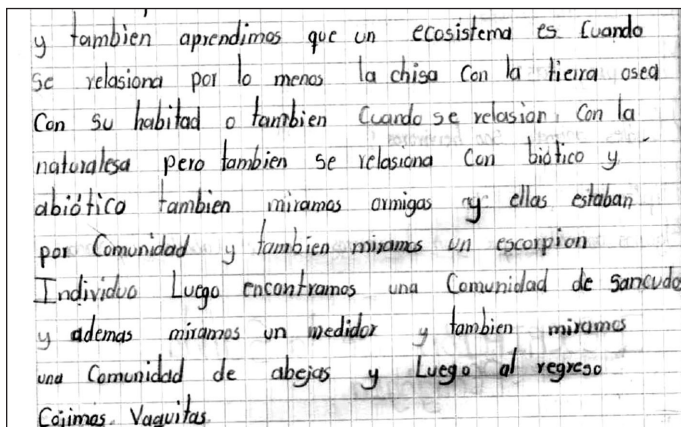 y tambien aprendimos que un ecosistema es Cuando
se relasiona por lo menos la chisa Con la tierra osea
Con su habitad o tambien Cuando se relasion Con la
naturalesa pero tambien se relasiona Con biótico y
abiótico tambien miramos ormigas y ellas estaban
por Comunidad y tambien miramos un escorpion
Individuo Luego encontramos una Comunidad de sancudos
y ademas miramos un medidor y tambien miramos
una Comunidad de abejas y Luego al regreso
Cojimos. Vaquitas